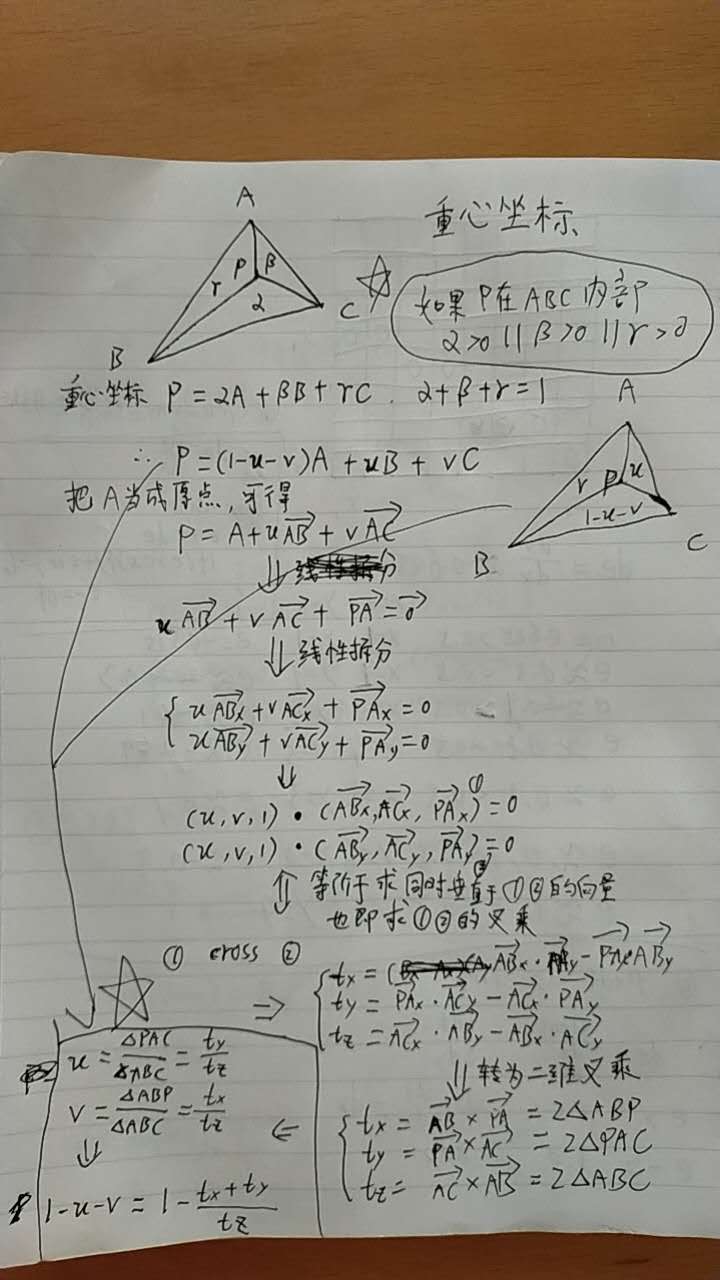 重心坐标
A
P β
γ
α
C
B
☆ 如果P在ABC内部
α>0 || β>0 || γ>0
重心坐标 P=αA+βB+γC. α+β+γ=1
A
∴ P=(1-u-v)A+uB+vC
v P u
1-u-v
B
C
把A当成原点,可得
P=A+uAB+vAC
⇓
uAB+vAC+PA=0
⇓ 线性拆分
{ uABx+vACx+PAx=0
uABy+vACy+PAy=0
⇓
(u,v,1)•(ABx,ACx,PAx)=0 ①
(u,v,1)•(ABy,ACy,PAy)=0 ②
⇕ 等价于求同时垂直于①②的向量
也即求①②的叉乘
☆ ① cross ②
⇒ { tx = ABx·PAy-PAx·ABy
ty = PAx·ACy-ACx·PAy
tz = ACx·ABy-ABx·ACy
⇓ 转为二维叉乘
{ tx = AB×PA = 2△ABP
ty = PA×AC = 2△PAC
tz = AC×AB = 2△ABC
⇐
u=△PAC/△ABC=ty/tz
v=△ABP/△ABC=tx/tz
⇓
1-u-v=1-(tx+ty)/tz